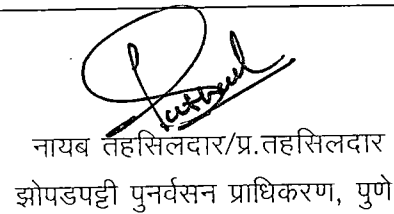 नायब तहसिलदार/प्र.तहसिलदार
झोपडपट्टी पुनर्वसन प्राधिकरण, पुणे